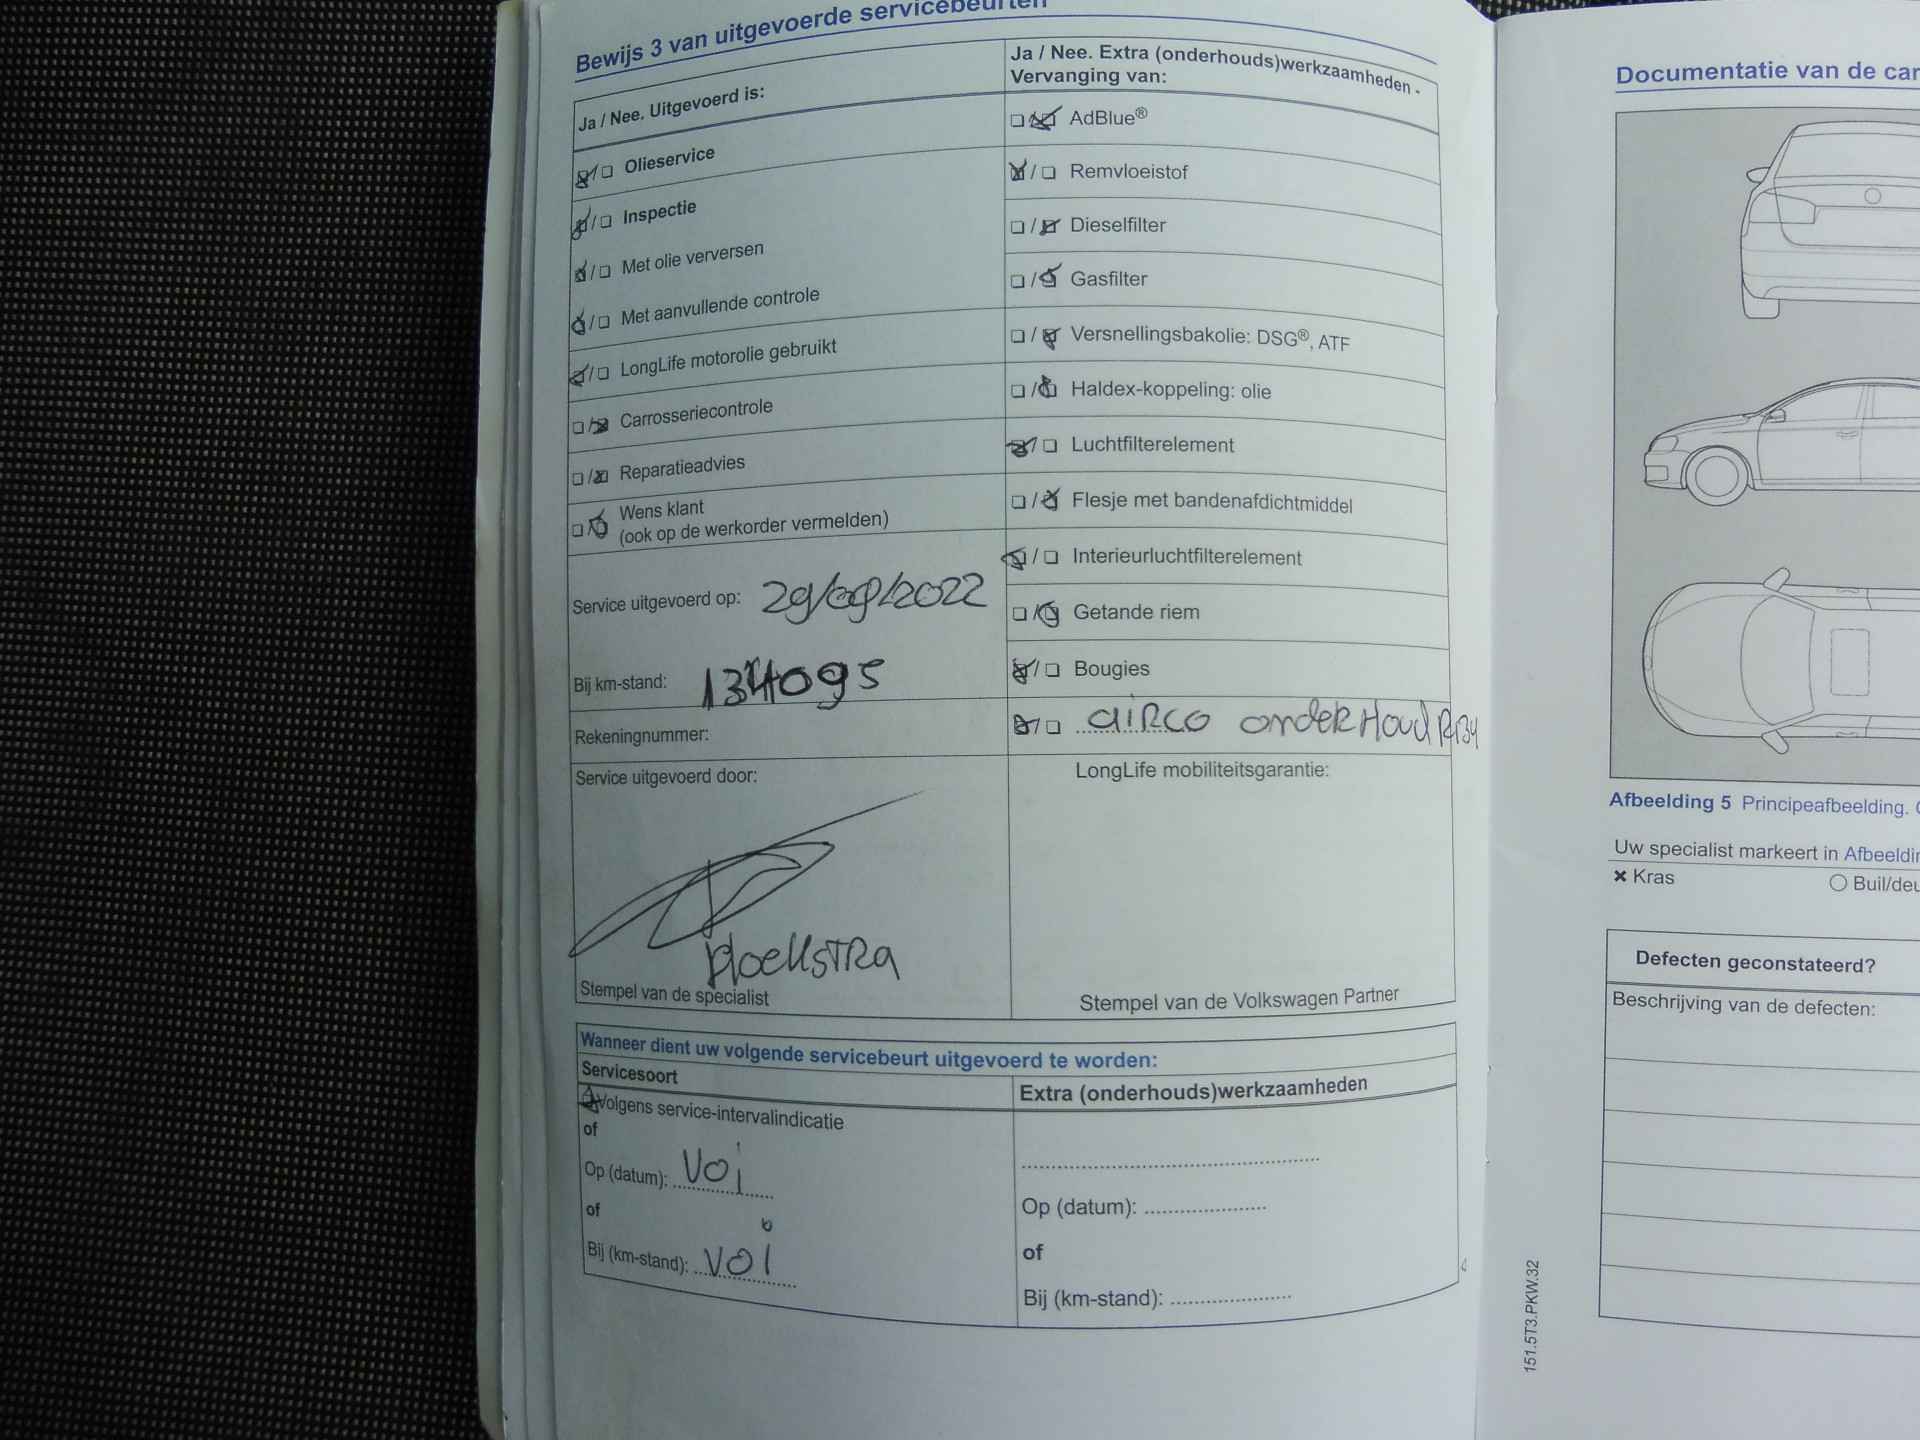 Bewijs 3 van uitgevoerde servicebeurten
Ja / Nee. Uitgevoerd is:
Olieservice
Inspectie
Met olie verversen
Met aanvullende controle
LongLife motorolie gebruikt
Carrosseriecontrole
Reparatieadvies
Wens klant
(ook op de werkorder vermelden)
Service uitgevoerd op: 29/09/2022
Bij km-stand: 134095
Rekeningnummer:
Service uitgevoerd door:
Hoekstra
Stempel van de specialist
Ja / Nee. Extra (onderhouds)werkzaamheden -
Vervanging van:
AdBlue®
Remvloeistof
Dieselfilter
Gasfilter
Versnellingsbakolie: DSG®, ATF
Haldex-koppeling: olie
Luchtfilterelement
Flesje met bandenafdichtmiddel
Interieurluchtfilterelement
Getande riem
Bougies
airco onderhoud R134
LongLife mobiliteitsgarantie:
Stempel van de Volkswagen Partner
Wanneer dient uw volgende servicebeurt uitgevoerd te worden:
Servicesoort
Volgens service-intervalindicatie
of
Op (datum): voi
of
Bij (km-stand): voi
Extra (onderhouds)werkzaamheden
Op (datum):
of
Bij (km-stand):
151.5T3.PKW.32
Documentatie van de car
Afbeelding 5 Principeafbeelding.
Uw specialist markeert in Afbeeldin
Kras
Buil/deu
Defecten geconstateerd?
Beschrijving van de defecten: